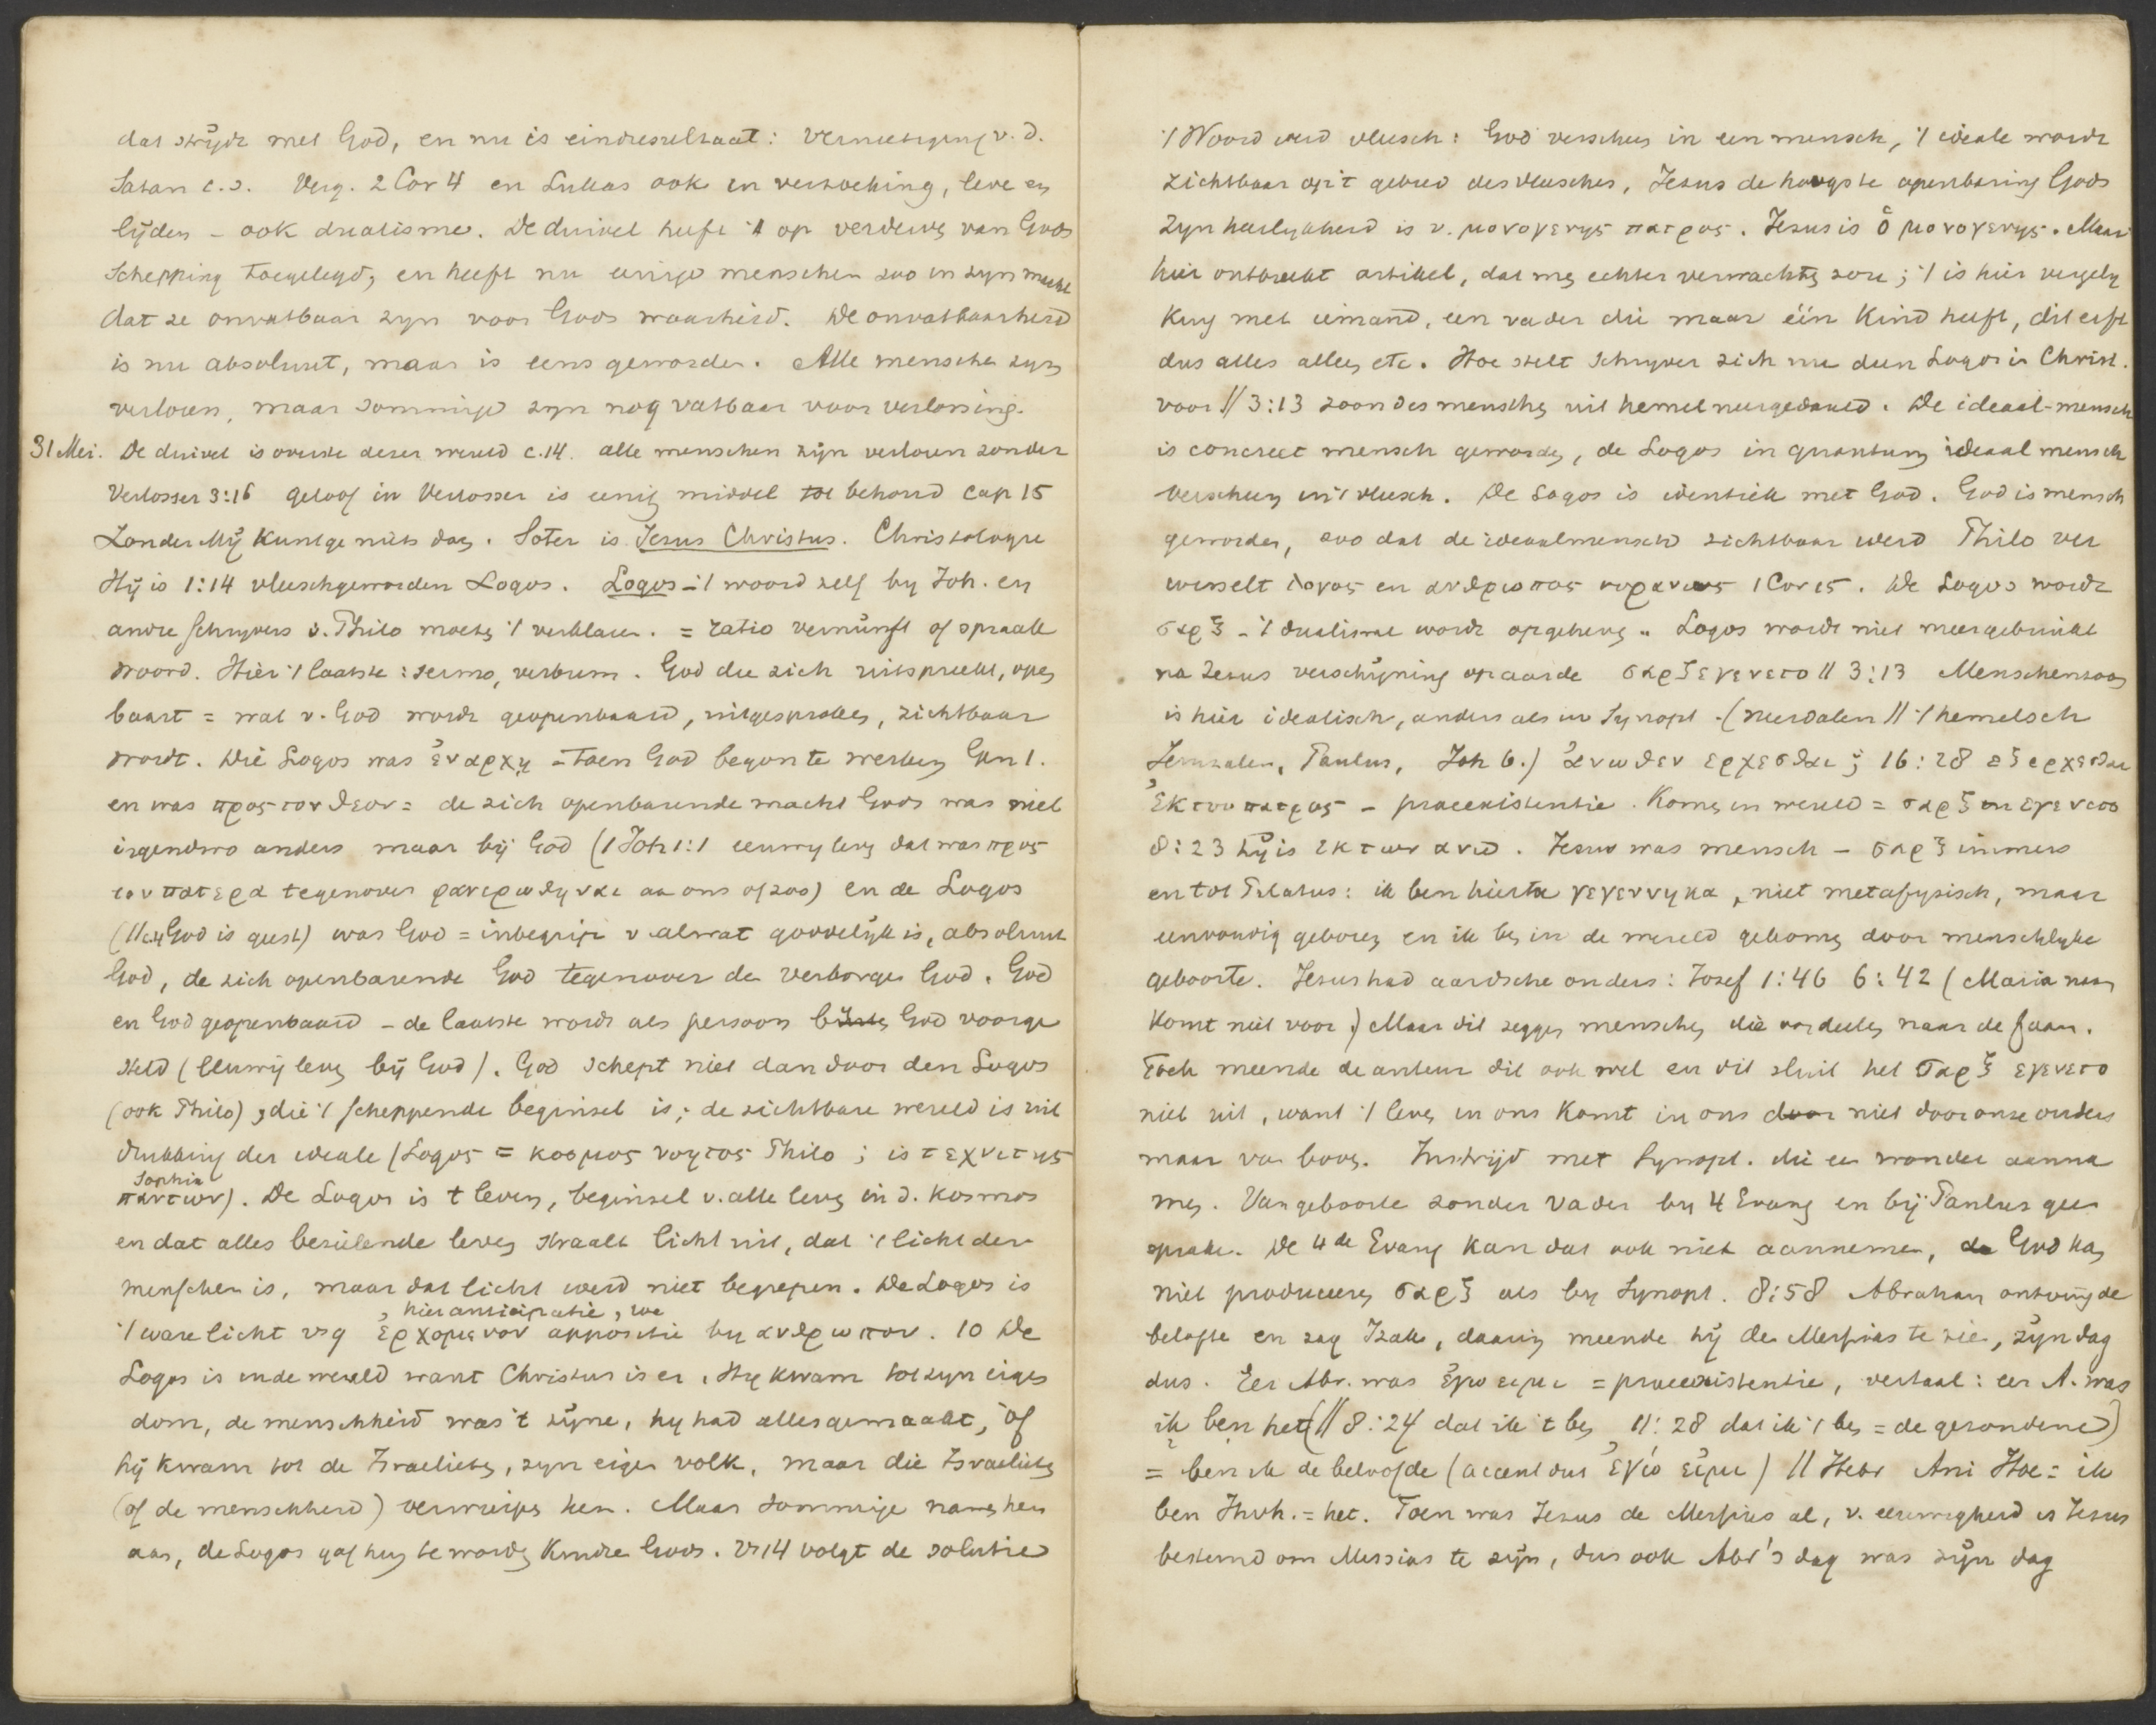 dat strijdt met God, en nu is eindresultaat: vernietiging v. d.
Satan c.s. Verg. 2 Cor 4 en Lukas ook in verzoeking, leve en
lijden – ook dualisme. De duivel heeft 't op verderve van Gods
Schepping toegelegd, en heeft nu eenige menschen zoo in zyn macht
dat ze onvatbaar zyn voor Gods waarheid. De onvatbaarheid
is nu absoluut, maar is eens geworden. Alle menschen zyn
verloren, maar sommige zyn nog vatbaar voor verlossing.
31 Mei. De duivel is overste dezer wereld c.14. alle menschen zijn verloren zonder
Verlosser 3:16 geloof in Verlosser is eenig middel tot behoud cap 15
Zonder Mij kunt ge niets doen. Soter is Jesus Christus. Christologie
Hij is 1:14 vleeschgeworden Logos. Logos – 't woord zelf by Joh. en
andre schryvers v. Philo moeten 't verklaren. = ratio vernünft of spraak
woord. Hier 't laatste: sermo, verbum. God die zich uitspreekt, open
baart = wat v. God wordt geopenbaard, uitgesproken, zichtbaar
wordt. Die Logos was ἐν αρχῃ = toen God begon te werken Gen 1.
en was προς τον θεον = de zich openbarende macht Gods was niet
irgendwo anders maar bij God (1 Joh 1:1 eeuwig leven dat was προς
τον πατερα tegenover φανερωθηναι aan ons of zoo) en de Logos
(// c.4 God is geest) was God = inbegrip v al wat goddelijk is, absoluut
God, de zich openbarende God tegenover den verborgen God. God
en God geopenbaard – de laatste wordt als persoon God voorge
steld (eeuwig leven bij God). God schept niet dan door den Logos
(ook Philo), die 't scheppende beginsel is; de zichtbare wereld is uit
drukking der ideale (Logos = κοσμος νοητος Philo; is τεχνιτης
Sophia
παντων). De Logos is t leven, beginsel v. alle leven in d. kosmos
en dat alles bezielende leven straalt licht uit, dat 't licht der
menschen is, maar dat licht werd niet begrepen. De Logos is
hier anticipatie, we
't ware licht vs 9 ἐρχομενον appositie by ανθρωπον. 10 De
Logos is in de wereld want Christus is er. Hy kwam tot zyn eigen
dom, de menschheid was 't zijne, hy had alles gemaakt, of
hij kwam tot de Israelieten, zyn eigen volk, maar die Israelieten
(of de menschheid) verwierpen hem. Maar sommige namen hem
aan, de Logos gaf hun te worden kindre Gods. Vs 14 volgt de solutie
't Woord werd vleesch: God verscheen in een mensch, 't ideale wordt
zichtbaar op 't gebied des vleesches, Jesus de hoogste openbaring Gods
zyn heerlykheid is v. μονογενης πατρος. Jesus is ὁ μονογενης. Maar
hier ontbreekt artikel, dat men echter verwachten zou; 't is hier vergely
king met iemand, een vader die maar één kind heeft, dit erft
dus alles alleen etc. Hoe stelt schryver zich nu deen Logos in Christ.
voor // 3:13 zoon des menschen uit hemel neergedaald. De ideaal-mensch
is concreet mensch geworden, de Logos in quantum ideaal mensch
verscheen in 't vleesch. De Logos is identiek met God. God is mensch
geworden, zoo dat de ideaalmensch zichtbaar werd Philo ver
wisselt λογος en ανθρωπος ουρανιος 1 Cor 15. De Logos wordt
σαρξ – 't dualisme wordt opgeheven. Logos wordt niet meer gebruikt
na Jesus verschijning op aarde σαρξ εγενετο // 3:13 Menschenzoon
is hier idealisch, anders als in Synopt. (neerdalen // 't hemelsch
Jeruzalem, Paulus, Joh 6.) ἀνωθεν ερχεσθαι; 16:28 εξερχεσθαι
ἐκ του πατρος – praeexistentie. Komen in wereld = σαρξ εγενετο
8:23 hij is εκ των ανω. Jesus was mensch – σαρξ immers
en tot Pilatus: ik ben hiertoe γεγεννημαι, niet metafysisch, maar
eenvoudig geboren en ik ben in de wereld gekomen door menschlyke
geboorte. Jesus had aardsche ouders: Jozef 1:46 6:42 (Maria naam
komt niet voor) Maar dit zeggen menschen die oordeelen naar de σαρξ.
Toch meende de auteur dit ook wel en dit sluit het σαρξ εγενετο
niet uit, want 't leven in ons komt in ons niet door onze ouders
maar van boven. In strijd met Synopt. die een wonder aanna
men. Van geboorte zonder vader by 4 Evang en bij Paulus geen
sprake. De 4de Evang kan dat ook niet aannemen, God kan
niet produceeren σαρξ als by Synopt. 8:58 Abraham ontving de
belofte en zag Izak, daarin meende hij den Messias te zien, zijn dag
dus. Eer Abr. was ἐγω ειμι = praeexistentie, vertaal: eer A. was
ik ben het (// 8:24 dat ik 't ben, 11:28 dat ik 't ben = de gezondene)
= ben ik de beloofde (accent dus ἐγώ εἰμι) // Hebr Ani Hoe = ik
ben Jhvh. = het. Toen was Jesus de Messias al, v. eeuwigheid is Jesus
bestemd om Messias te zijn, dus ook Abr's dag was zijn dag